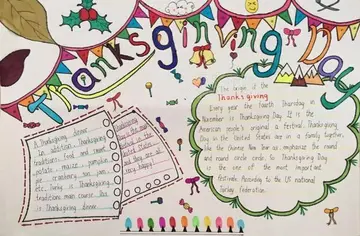 Thanksgiving Day
The origin of the
Thanksgiving
Every year the fourth Thursday in
November is Thanksgiving Day. It is the
American people's original a festival. Thanksgiving
Day in the United States are in a family together,
like the Chinese New Year as, emphasize the round
and round circle circle. So Thanksgiving Day
is the one of the most important
festivals. According to the US national
Turkey Federation.
A Thanksgiving dinner
In addition, Thanksgiving
tradition food and sweet
potato, maize, pumpkin
pie, cranberry
etc. Turkey is Thanksgiving
traditions main course
Thanksgiving dinner
Thanksgiving
and they are all
very happy